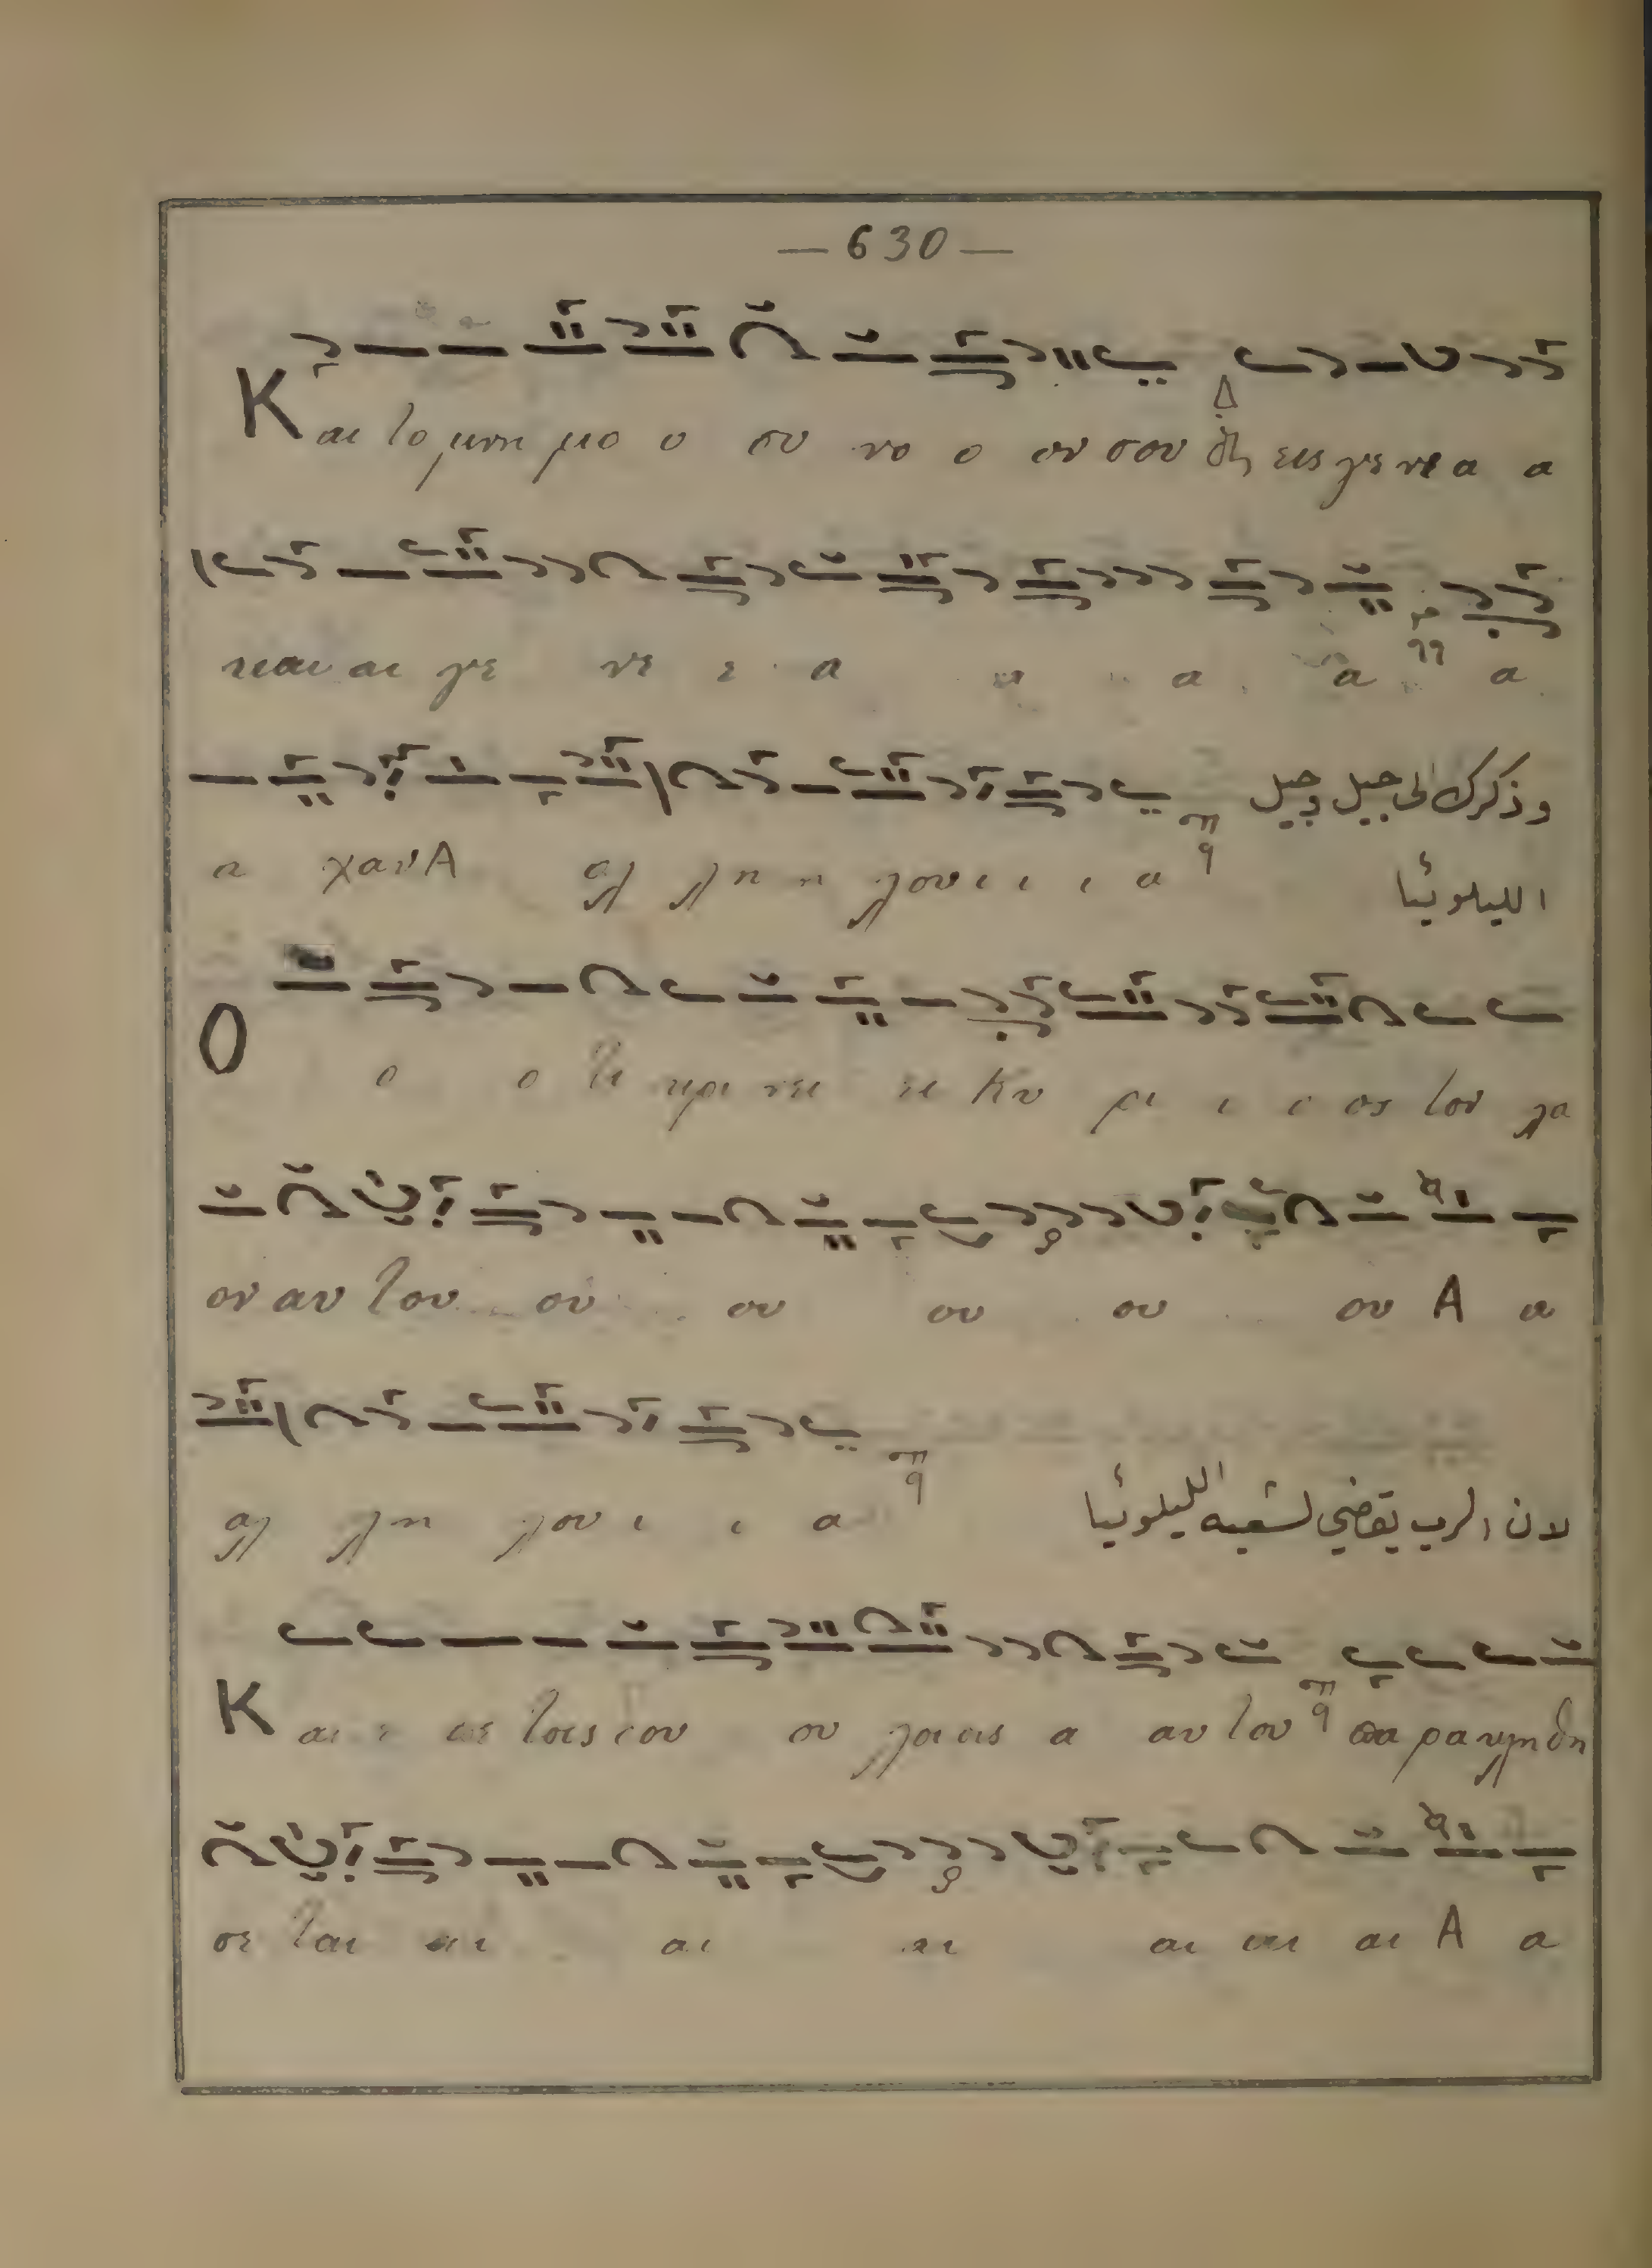 — 630 —
Και το μνη μο ο συ νο ο ον σου εις γε νε α α
και αι γε νε ε α α α α α
وذكرك الى جيل وجيل
α χαν Α αλ λη η λου ι ι ι α
الليلوئيا
Ο ο ο τι κρι νει ει Κυ ρι ι ι ος τον λα
ον αυ του ου ου ου ου ου Α α
αλ λη λου ι ι α
لان الرب يقضي لشعبه الليلوئيا
Και ε πι τοις δου ου λοις α αυ του πα ρα κλη θη
σε ται αι αι αι αι αι αι Α α